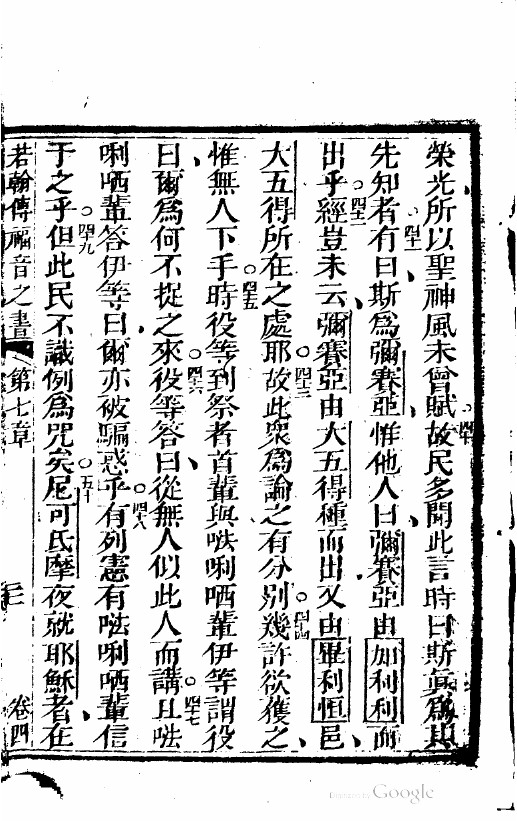 榮光所以聖神風未曾賦。四十故民多聞此言時曰斯眞爲其
先知者。四十一有曰斯爲彌賽亞惟他人曰彌賽亞由加利利而
出乎。四十二經豈未云彌賽亞由大五得種而出又由畢利恒邑、
大五得所在之處耶。四十三故此衆爲論之有分別。四十四幾許欲獲之、
惟無人下手。四十五時役等到祭者首輩與𠵽唎哂輩伊等謂役
曰爾爲何不捉之來。四十六役等答曰從無人似此人而講。四十七且𠵽
唎哂輩答伊等曰爾亦被騙惑乎。四十八有列憲有𠵽唎哂輩信
于之乎。四十九但此民不識例爲咒矣。五十尼可氏摩夜就耶穌者在
若翰傳福音之書 第七章 三 卷四
Digitized by Google